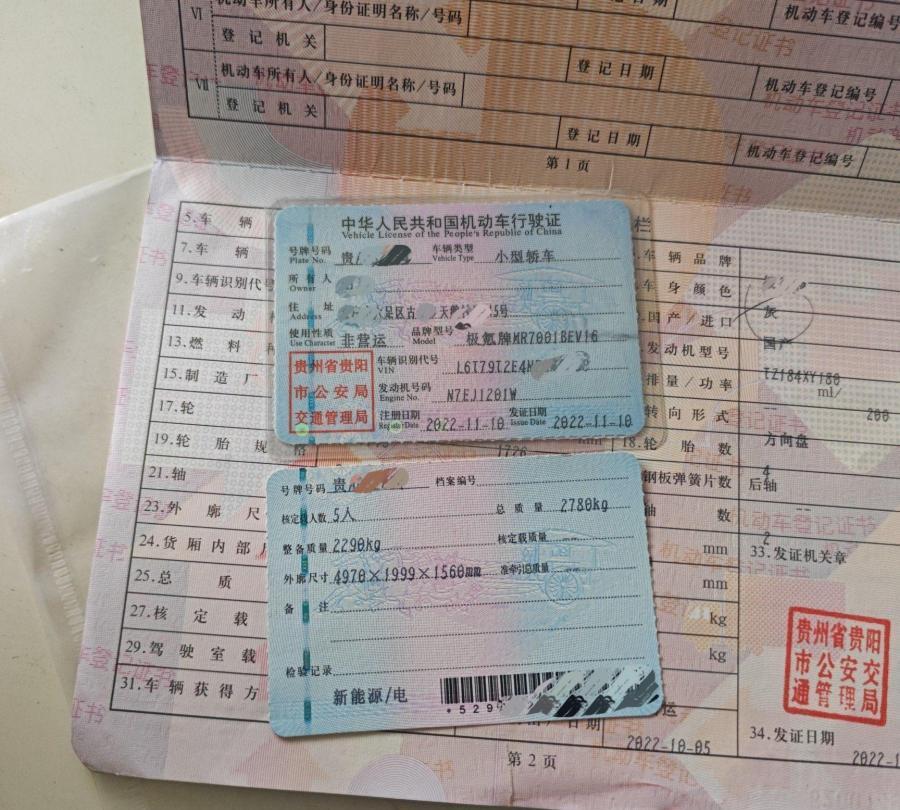 VI 机动车所有人/身份证明名称/号码
登记机关 登记日期 机动车登记编号
VII 机动车所有人/身份证明名称/号码
登记机关 登记日期 机动车登记编号
第1页
5.车辆 栏
7.车辆 车辆品牌
9.车辆识别代 车身颜色 灰
11.发动 国产/进口 国产
13.燃料 发动机型号 TZ184XY180
15.制造厂 排量/功率 ml/ 200
17.轮 转向形式 方向盘
19.轮胎规格 1726 mm 18.轮胎数 4
21.轴 钢板弹簧片数 后轴 --
23.外廓尺 轴数 2
24.货厢内部 mm 33.发证机关章
25.总质 mm
27.核定载 kg
29.驾驶室载 kg
31.车辆获得方 日期 2022-10-05 34.发证日期 2022-1
贵州省贵阳
市公安交
通管理局
第2页
中华人民共和国机动车行驶证
Vehicle License of the People's Republic of China
号牌号码 贵 车辆类型 小型轿车
Plate No. Vehicle Type
所有人
Owner
住址 六足区古 天 15号
Address
使用性质 非营运 品牌型号 极氪牌MR7001BEV16
Use Character Model
贵州省贵阳
市公安局
交通管理局
车辆识别代号 L6T79T2E4N
VIN
发动机号码 N7EJ1201W
Engine No.
注册日期 2022-11-10 发证日期 2022-11-10
Register Date Issue Date
号牌号码 贵 档案编号
核定载人数 5人 总质量 2780kg
整备质量 2290kg 核定载质量 --
外廓尺寸 4970×1999×1560mm 准牵引总质量 --
备注
检验记录
新能源/电
*529